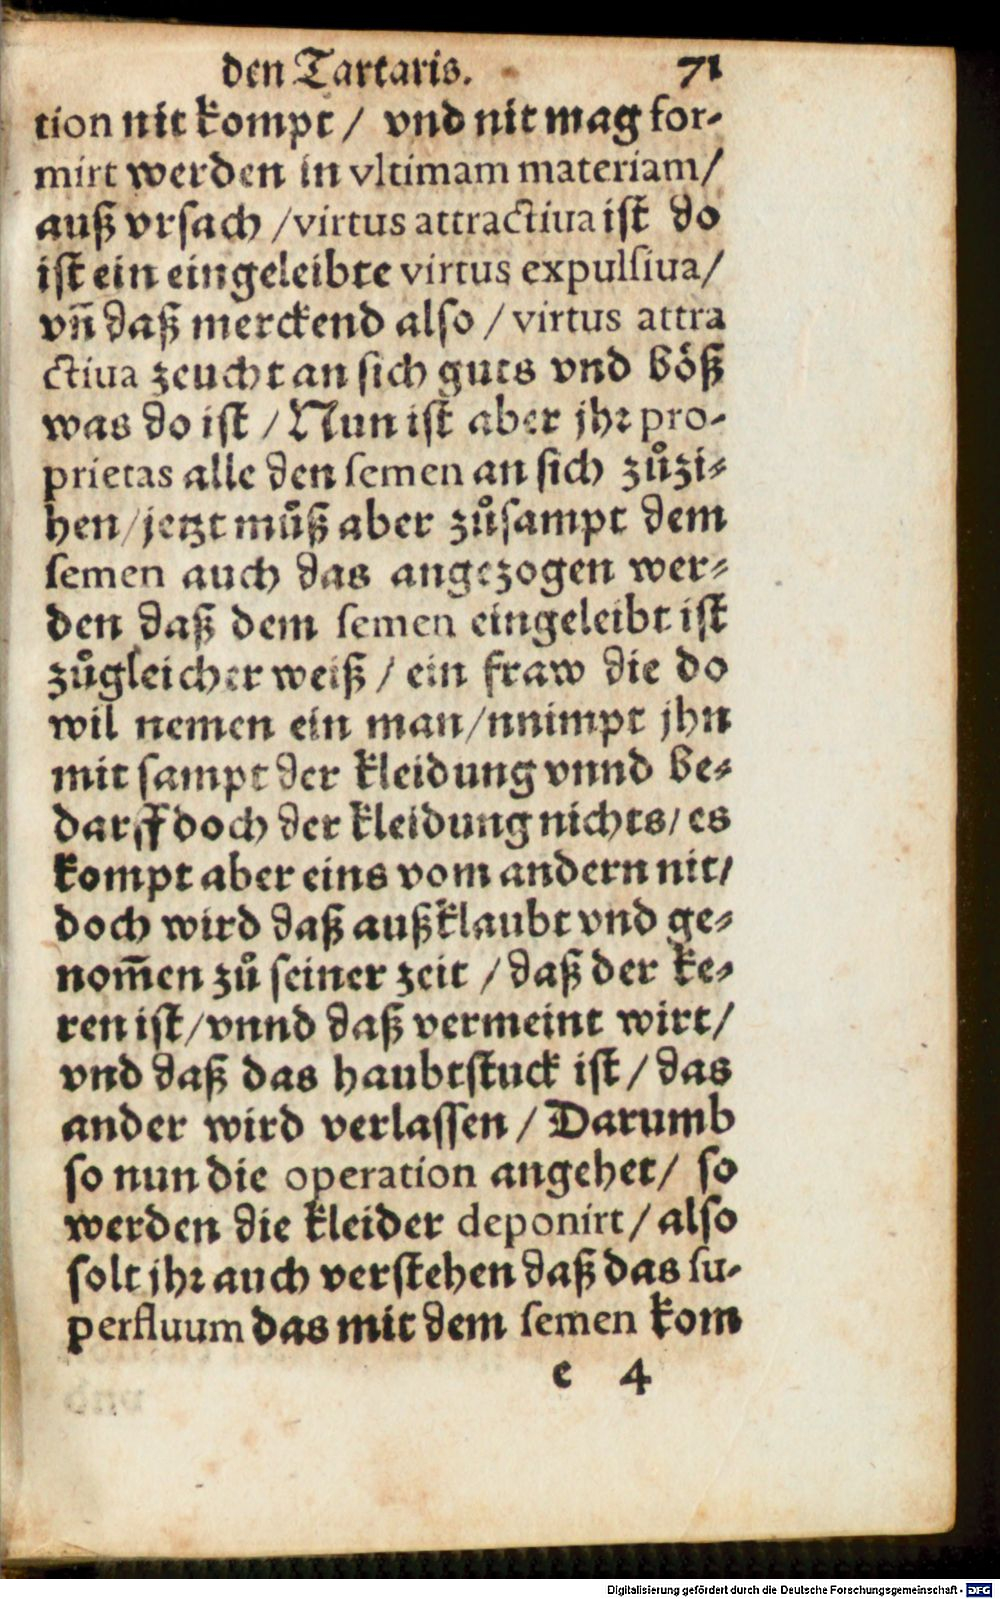 den Tartaris. 71
tion nit kompt / vnd nit mag for-
mirt werden in vltimam materiam /
auß vrsach / virtus attractiua ist do
ist ein eingeleibte virtus expulsiua /
vñ daß merckend also / virtus attra
ctiua zeucht an sich guts vnd böß
was do ist / Nun ist aber jhr pro-
prietas alle den semen an sich zůzi-
hen / jetzt můß aber zůsampt dem
semen auch das angezogen wer-
den daß dem semen eingeleibt ist
zůgleicher weiß / ein fraw die do
wil nemen ein man / nnimpt jhn
mit sampt der kleidung vnnd be-
darff doch der kleidung nichts / es
kompt aber eins vom andern nit /
doch wird daß außklaubt vnd ge-
nom̃en zů seiner zeit / daß der ke-
ren ist / vnnd daß vermeint wirt /
vnd daß das haubtstuck ist / das
ander wird verlassen / Darumb
so nun die operation angehet / so
werden die kleider deponirt / also
solt jhr auch verstehen daß das su-
perfluum das mit dem semen kom
e 4
Digitalisierung gefördert durch die Deutsche Forschungsgemeinschaft - DFG